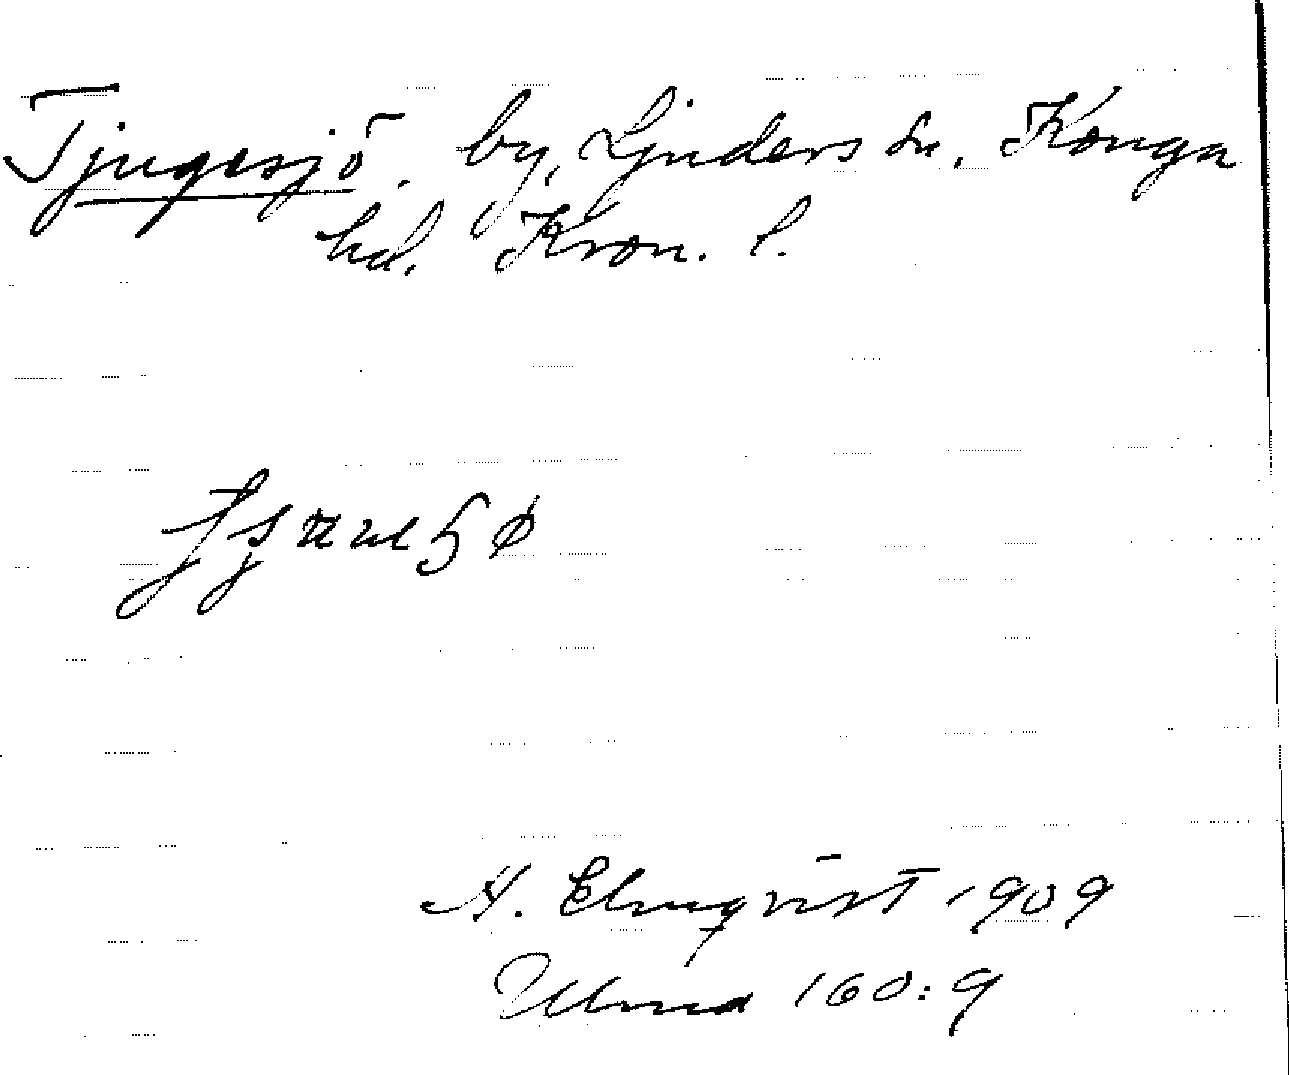 Tjugesjö. by, Ljuders sn. Konga
hd. Kron. l.
A. Elmqvist 1909
Ulma 160:9